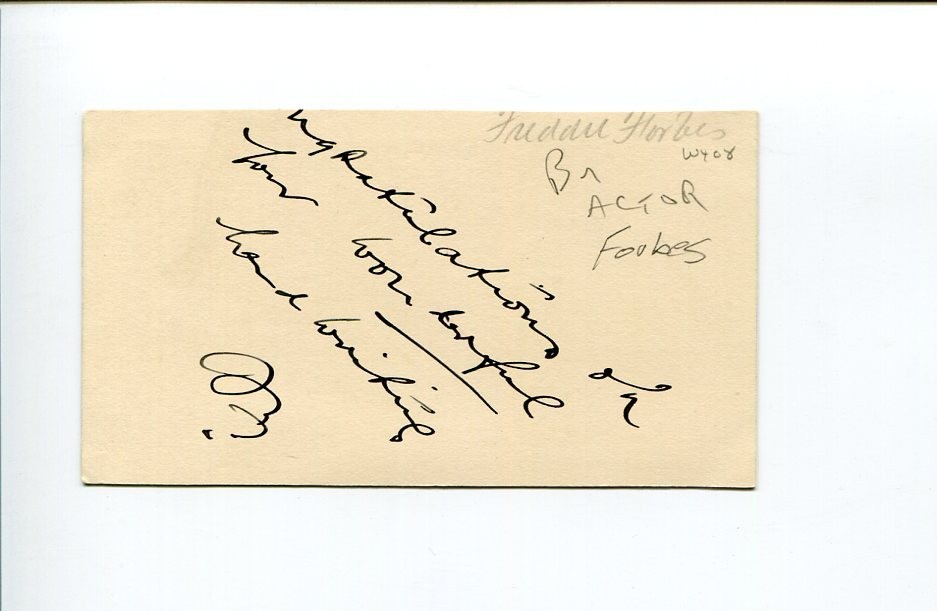 Freddie Forbes
W408
Br
ACTOR
Forbes
ngratulations on
your wonderful
hand writing